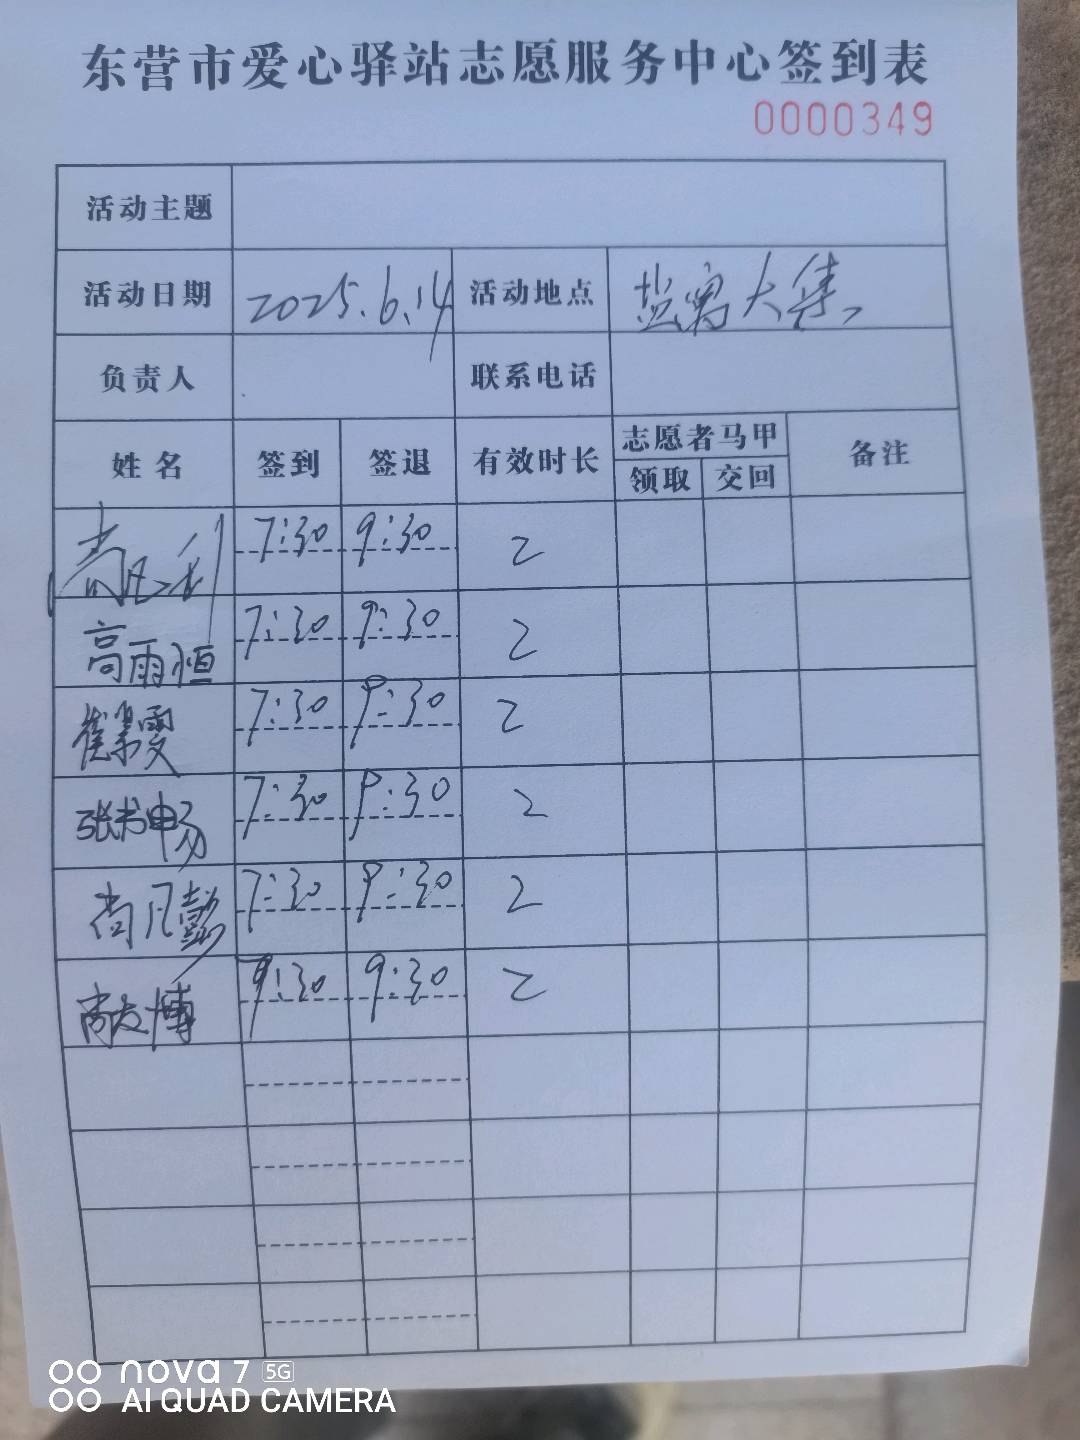 东营市爱心驿站志愿服务中心签到表
0000349
活动主题
活动日期 2025.6.14 活动地点 盐窝大集
负责人 联系电话
姓名 签到 签退 有效时长 志愿者马甲 备注
领取 交回
7:30 9:30 2
高雨恒 7:30 9:30 2
7:30 9:30 2
张书畅 7:30 9:30 2
尚凡彭 7:30 9:30 2
9:30 9:30 2
nova 7 5G
AI QUAD CAMERA